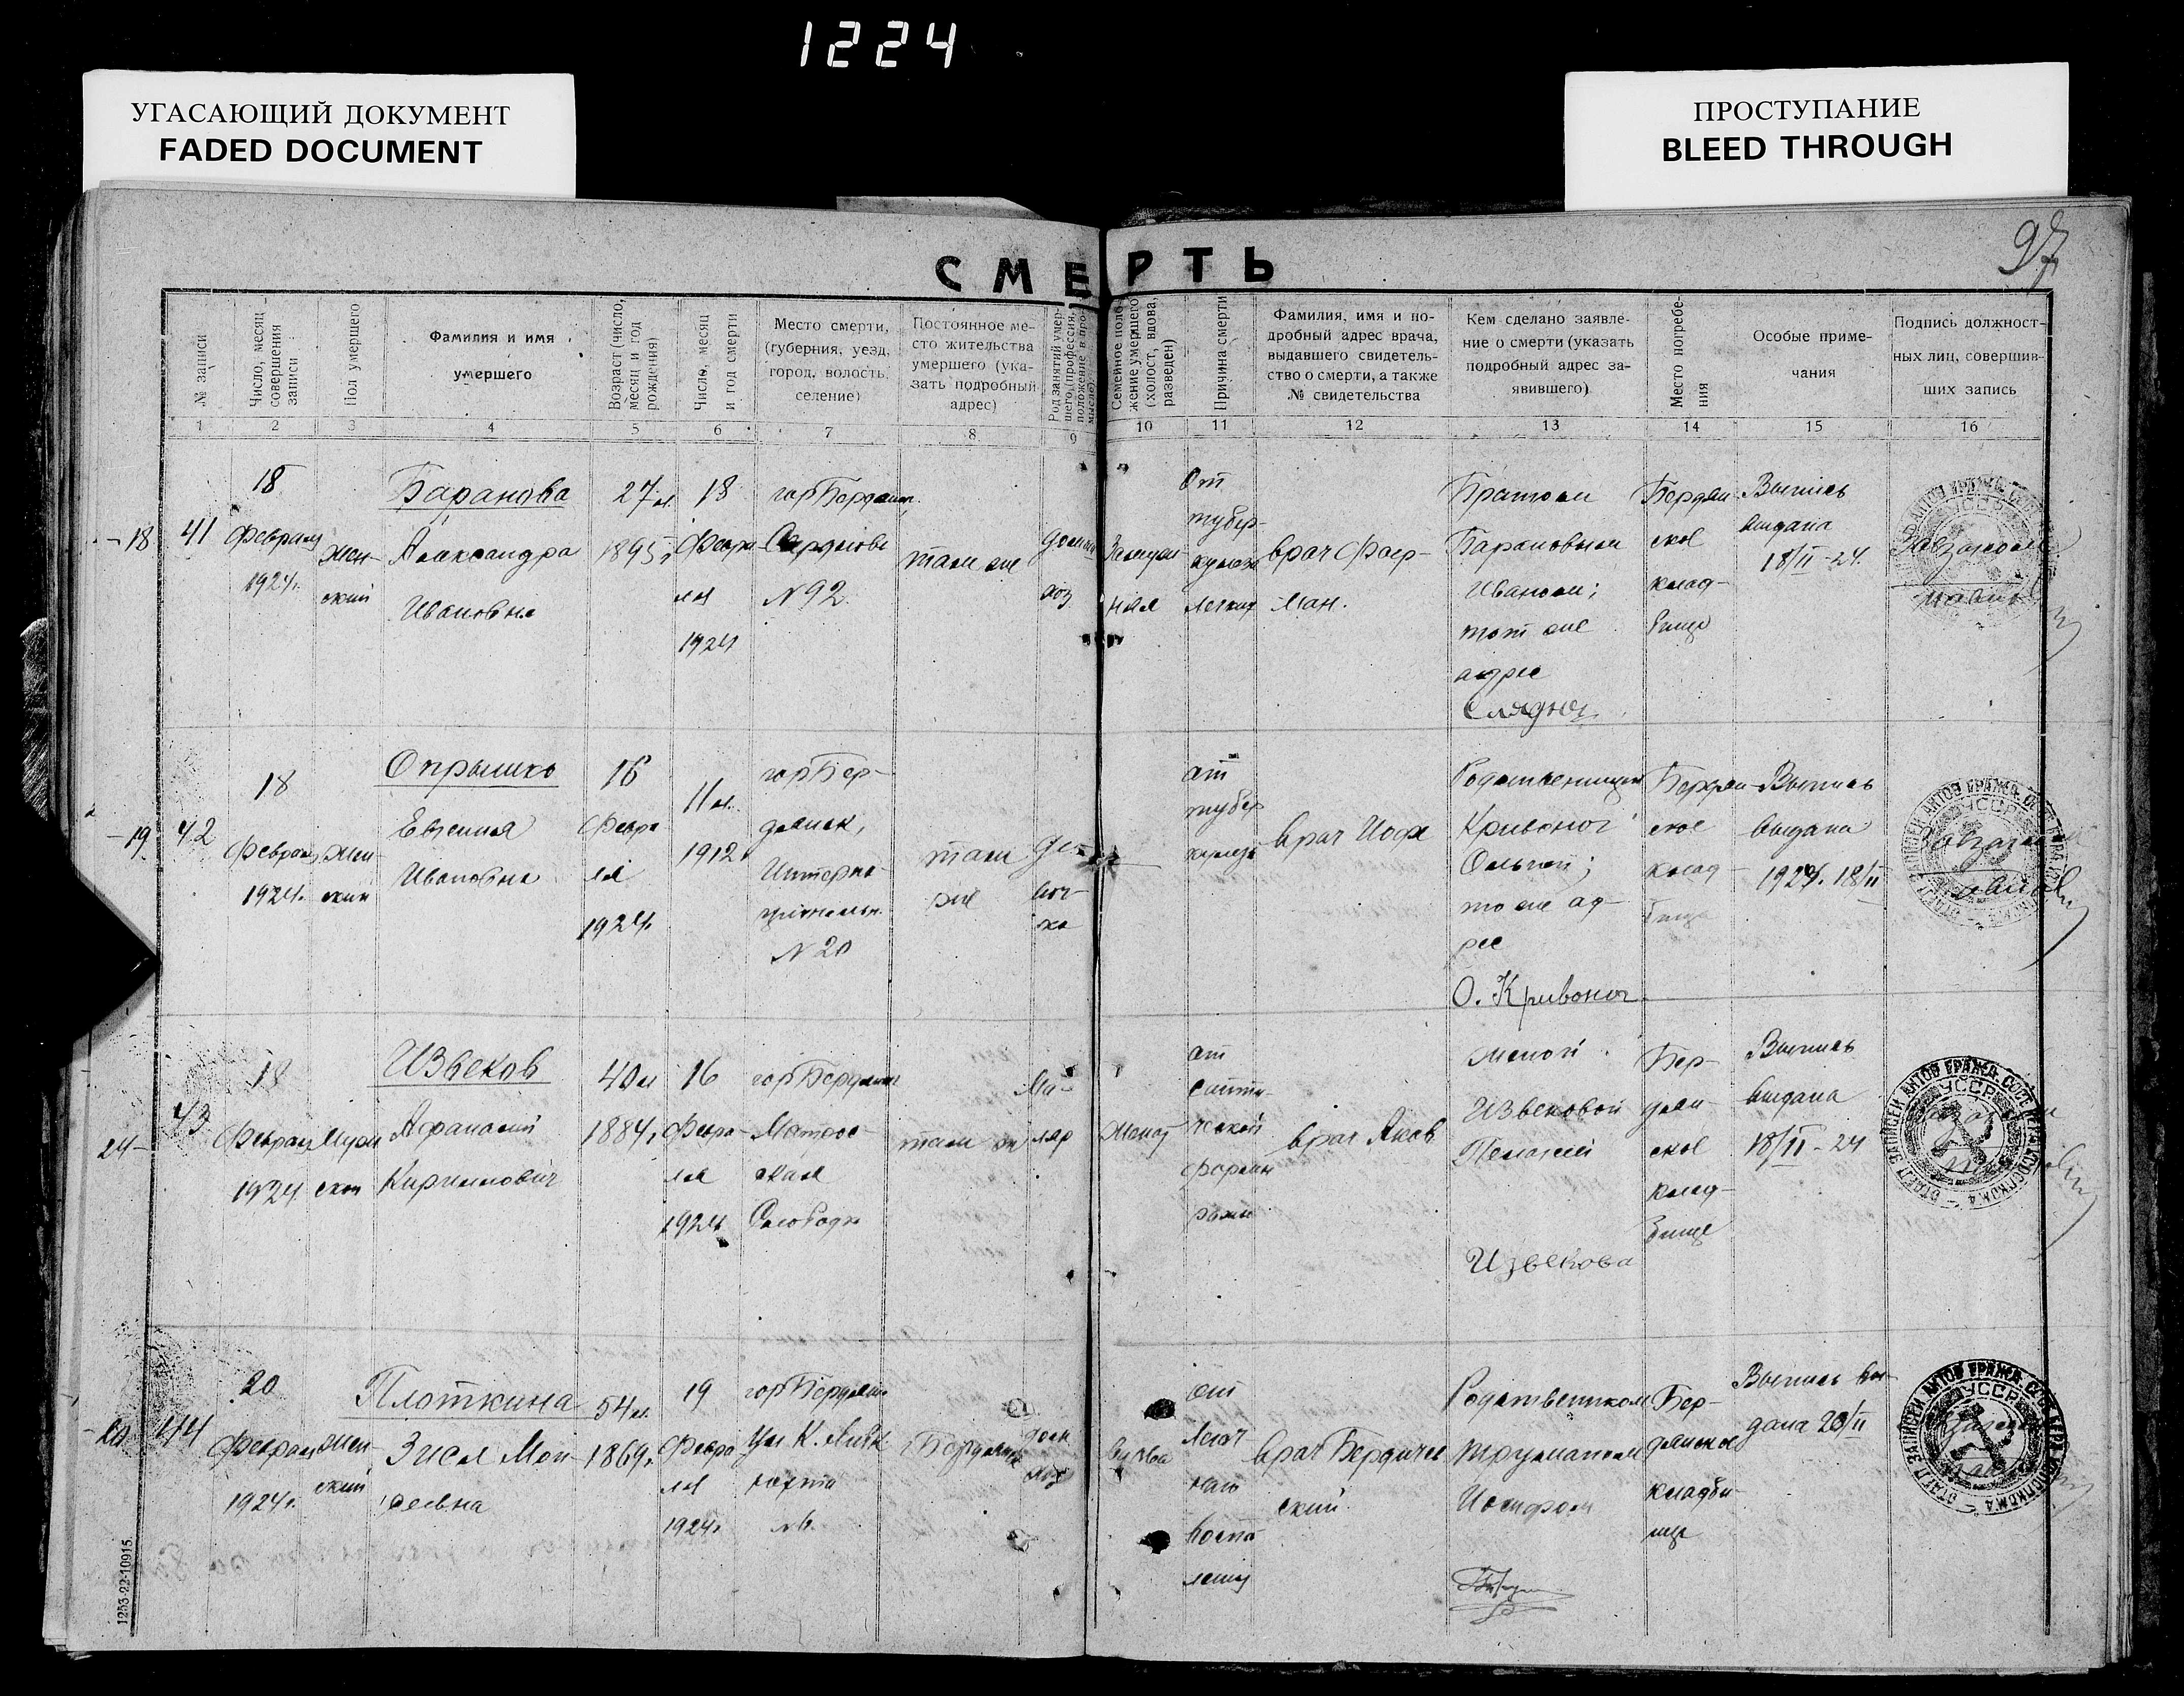 1224
УГАСАЮЩИЙ ДОКУМЕНТ
FADED DOCUMENT
ПРОСТУПАНИЕ
BLEED THROUGH
97
СМЕРТЬ
№ записи
Число, месяц
совершения
записи
Пол умершего
Фамилия и имя
умершего
Возраст (число,
месяц и год
рождения)
Число, месяц
и год смерти
Место смерти,
(губерния, уезд,
город, волость,
селение)
Постоянное ме-
сто жительства
умершего (ука-
зать подробный
адрес)
Род занятий умер-
шего, (профессия,
положение в про-
мысле)
Семейное поло-
жение умершего
(холост, вдова,
разведен)
Причина смерти
Фамилия, имя и по-
дробный адрес врача,
выдавшего свидетель-
ство о смерти, а также
№ свидетельства
Кем сделано заявле-
ние о смерти (указать
подробный адрес за-
явившего)
Место погребе-
ния
Особые приме-
чания
Подпись должност-
ных лиц, совершив-
ших запись
1 2 3 4 5 6 7 8 9 10 11 12 13 14 15 16
-18
41
18
Февраля
1924г.
Жен-
ский
Баранова
Александра
Ивановна
27 л.
1895 г.
18
Февра
ля
1924
гор Бердянск,
N 92.
там же
дом
хоз
Замуж
няя
От
тубер-
кулеза
легких
врач Фаер-
ман.
Братом
Барановым
Иваном;
тот же
адрес
Бердян
ское
клад-
бище
Выпись
выдана
18/II-24.
Завзагсом
-19
42
18
Февраля
1924г.
Жен
ский
Опрышко
Евгения
Ивановна
16
Февра
ля
1924г.
11 л.
1912
гор Бер-
дянск,
Интерна-
циональн.
N 20
там
же
де-
воч-
ка
от
тубер
кулеза
врач Иофе
Родственницей
Кривоног
Ольгой;
то же ад-
рес
О. Кривоног
Бердян-
ское
клад-
бище
Выпись
выдана
1924г. 18/II
Завзагсом
24-
43
18
Февраля
1924г.
Муж
ской
Извеков
Афанасий
Кириллович
40 л
1884г.
16
Февра-
ля
1924г.
гор Бердянск
Матрос-
ская
Слободк
там же
Ма-
ляр
Женат
от
септи-
ческой
врач Яков
женой
Извековой
Пелагией
Извекова
Бер-
дян-
ское
клад-
бище
Выпись
выдана
18/II-24
ОТДЕЛ ЗАПИСЕЙ АКТОВ ГРАЖД. СОСТ.
УССР
20
44
20
Февраля
1924г.
Жен-
ский
Плоткина
Зисля Мои-
сеевна
54 л.
1869г.
19
Февра
ля
1924г.
гор Бердянск
Ул К. Либк
нехта
N 6.
Бердянск
дом
хоз
вдова
от
легоч
наго
воспа
ления
врач Бердичев
ский
Родственником
Трумапом
Иосифом
Бер-
дянское
кладби-
ще
Выпись вы-
дана 20/II
ОТДЕЛ ЗАПИСЕЙ АКТОВ ГРАЖД. СОСТ.
УССР
1253-22-10915.